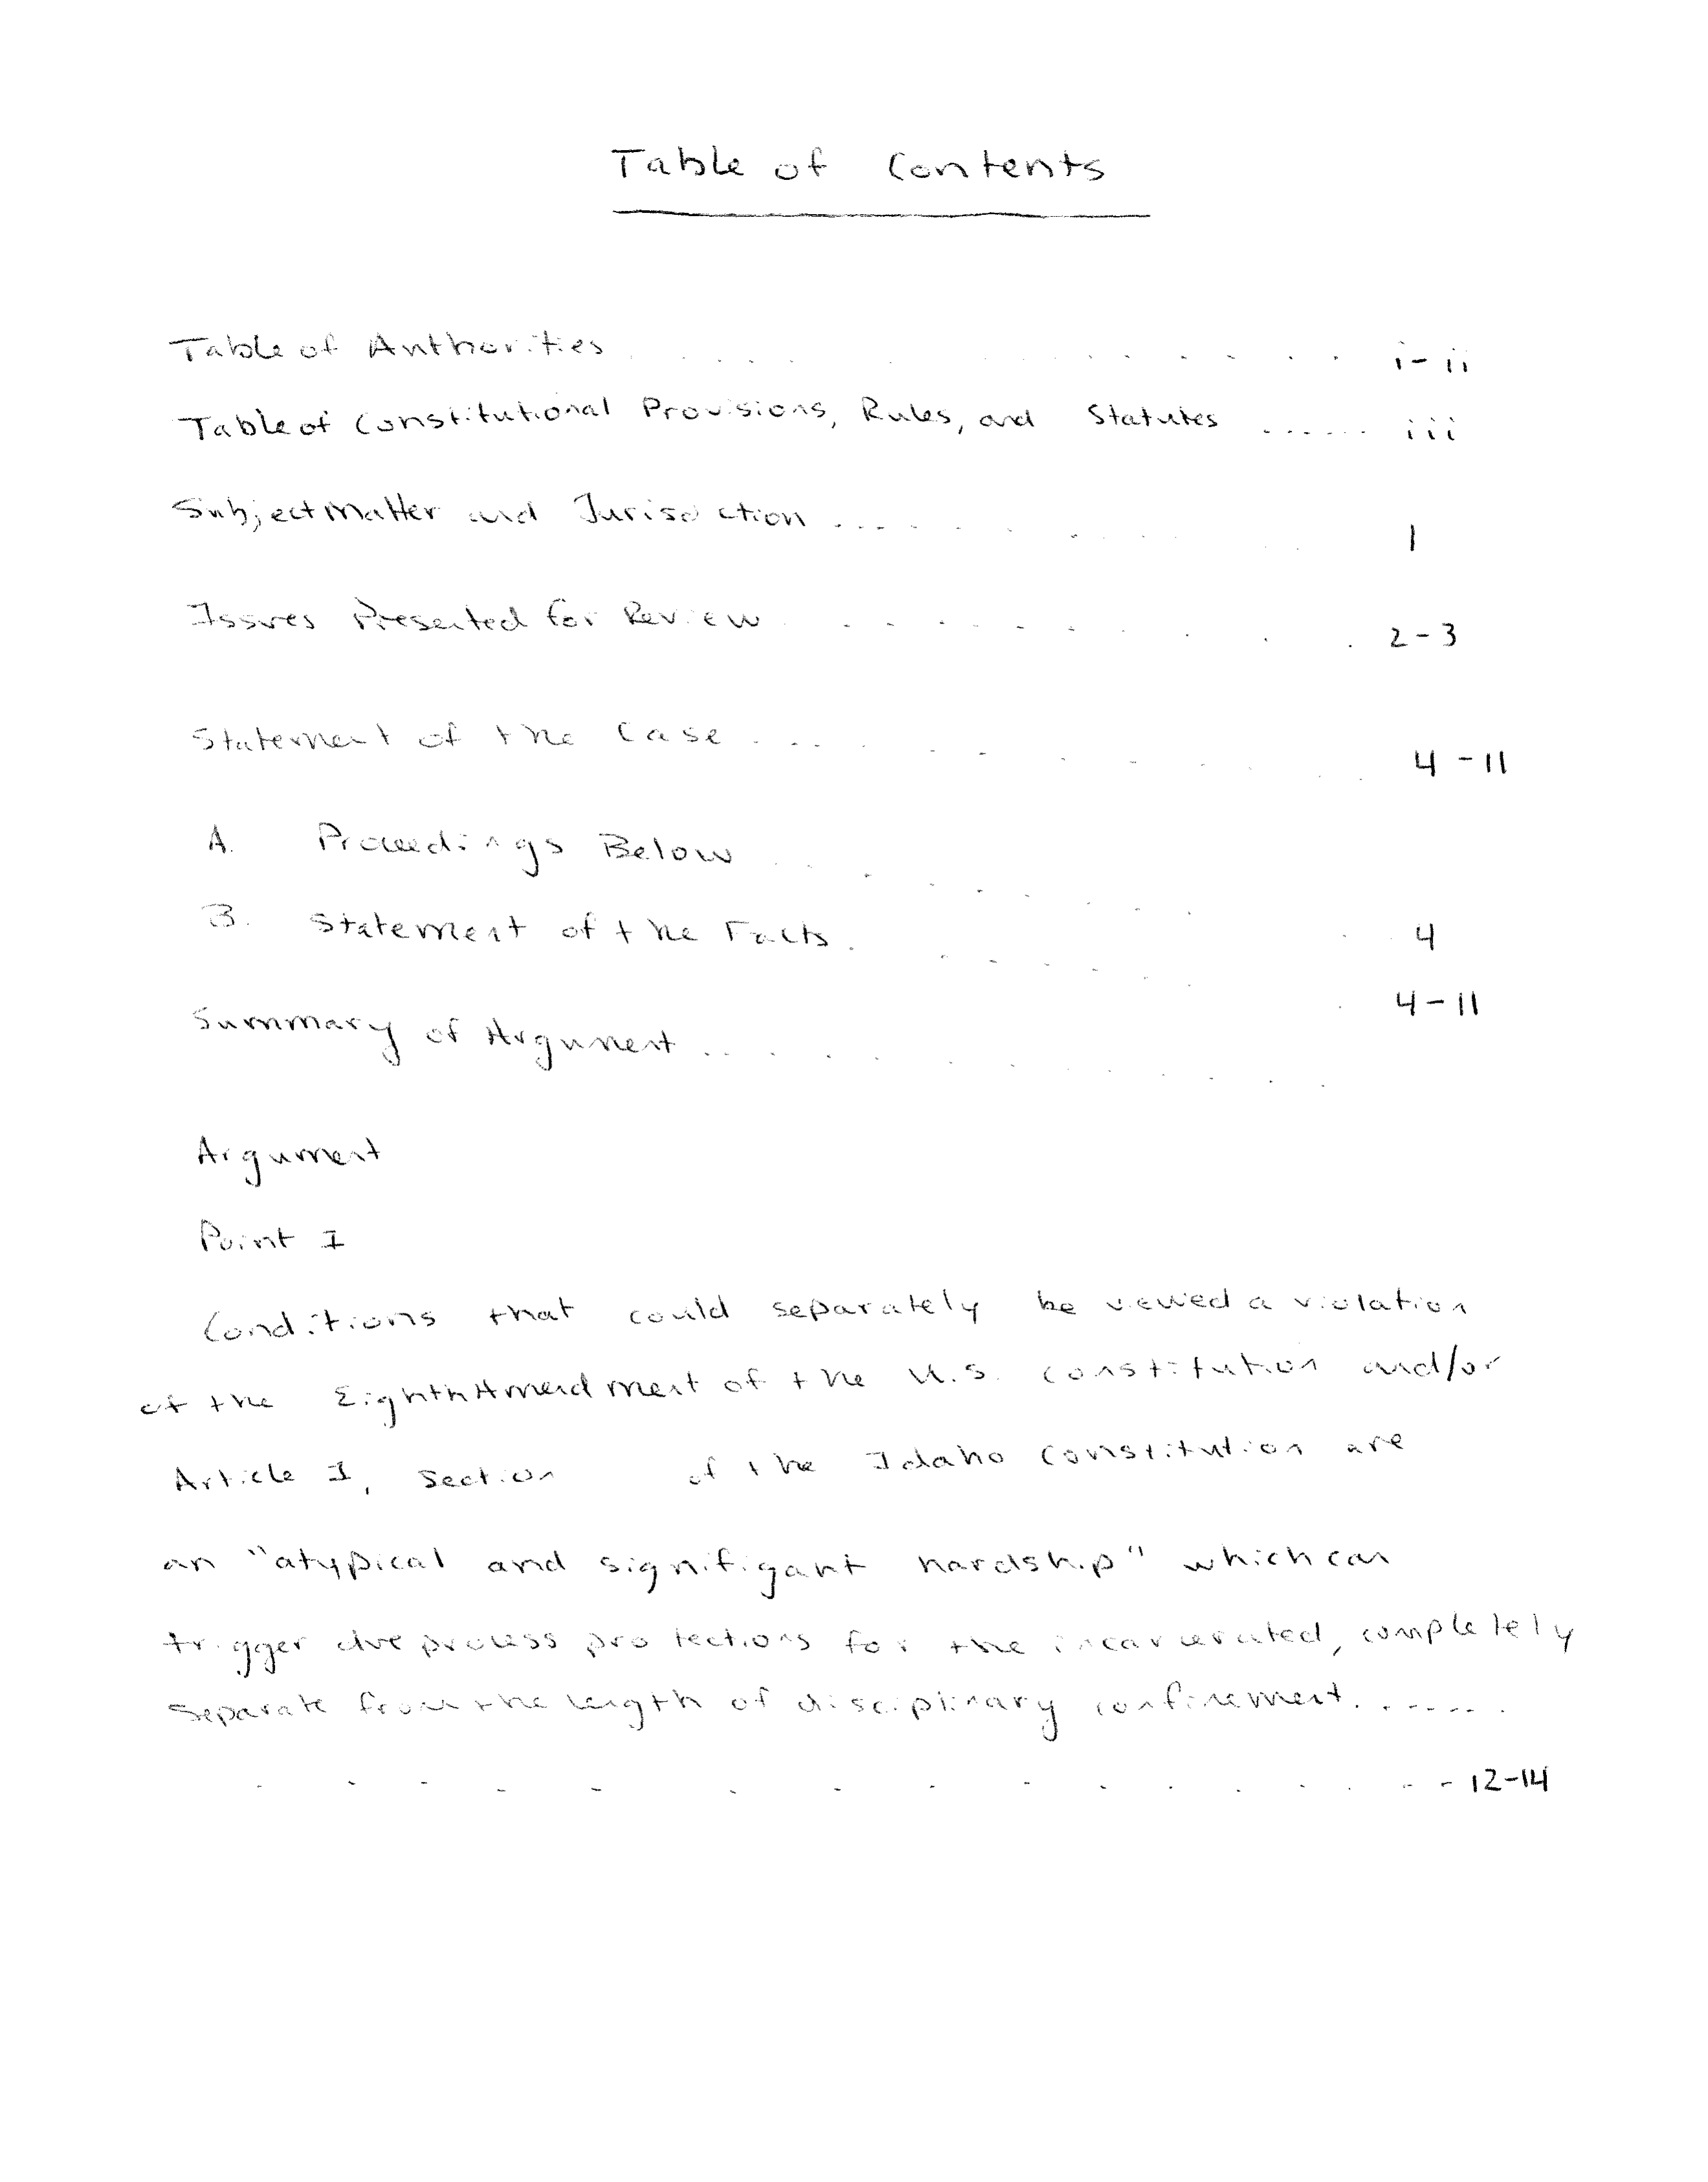 Table of Contents
Table of Authorities . . . . . . . . . . . . i - ii
Table of Constitutional Provisions, Rules, and Statutes ...... iii
Subject Matter and Jurisdiction .... . . . . . . 1
Issues Presented for Review . . . . . . . . . . 2 - 3
Statement of the Case . . . . . . . . . 4 - 11
A. Proceedings Below . . . . . . . .
B. Statement of the Facts . . . . . . . . 4
4 - 11
Summary of Argument .. . . . . . . . .
Argument
Point I
Conditions that could separately be viewed a violation
of the Eighth Amendment of the U.S. Constitution and/or
Article I, Section of the Idaho Constitution are
an "atypical and signifigant hardship" which can
trigger due process protections for the incarcerated, completely
separate from the length of disciplinary confinement. ......
. . . . . . . . . . . . . . . 12-14